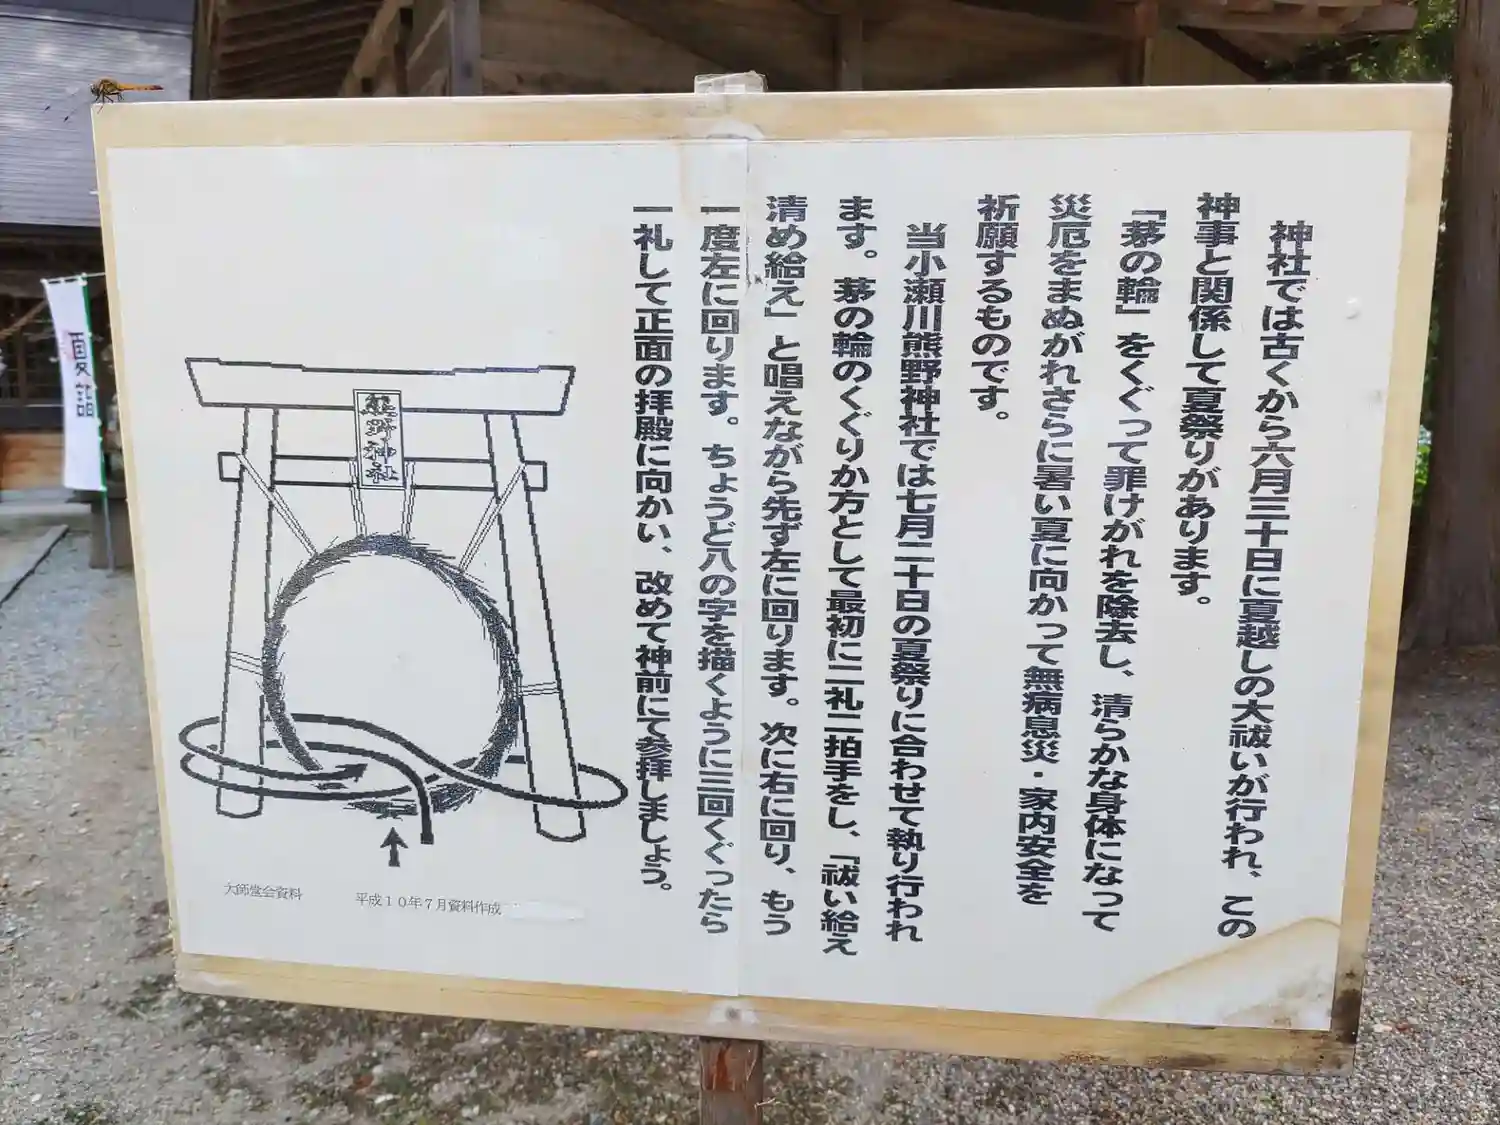 神社では古くから六月三十日に夏越しの大祓いが行われ、この
神事と関係して夏祭りがあります。
「茅の輪」をくぐって罪けがれを除去し、清らかな身体になって
災厄をまぬがれさらに暑い夏に向かって無病息災・家内安全を
祈願するものです。
当小瀬川熊野神社では七月二十日の夏祭りに合わせて執り行われ
ます。茅の輪のくぐりか方として最初に二礼二拍手をし、「祓い給え
清め給え」と唱えながら先ず左に回ります。次に右に回り、もう
一度左に回ります。ちょうど八の字を描くように三回くぐったら
一礼して正面の拝殿に向かい、改めて神前にて参拝しましょう。
熊野神社
大師堂会資料
平成１０年７月資料作成
夏詣